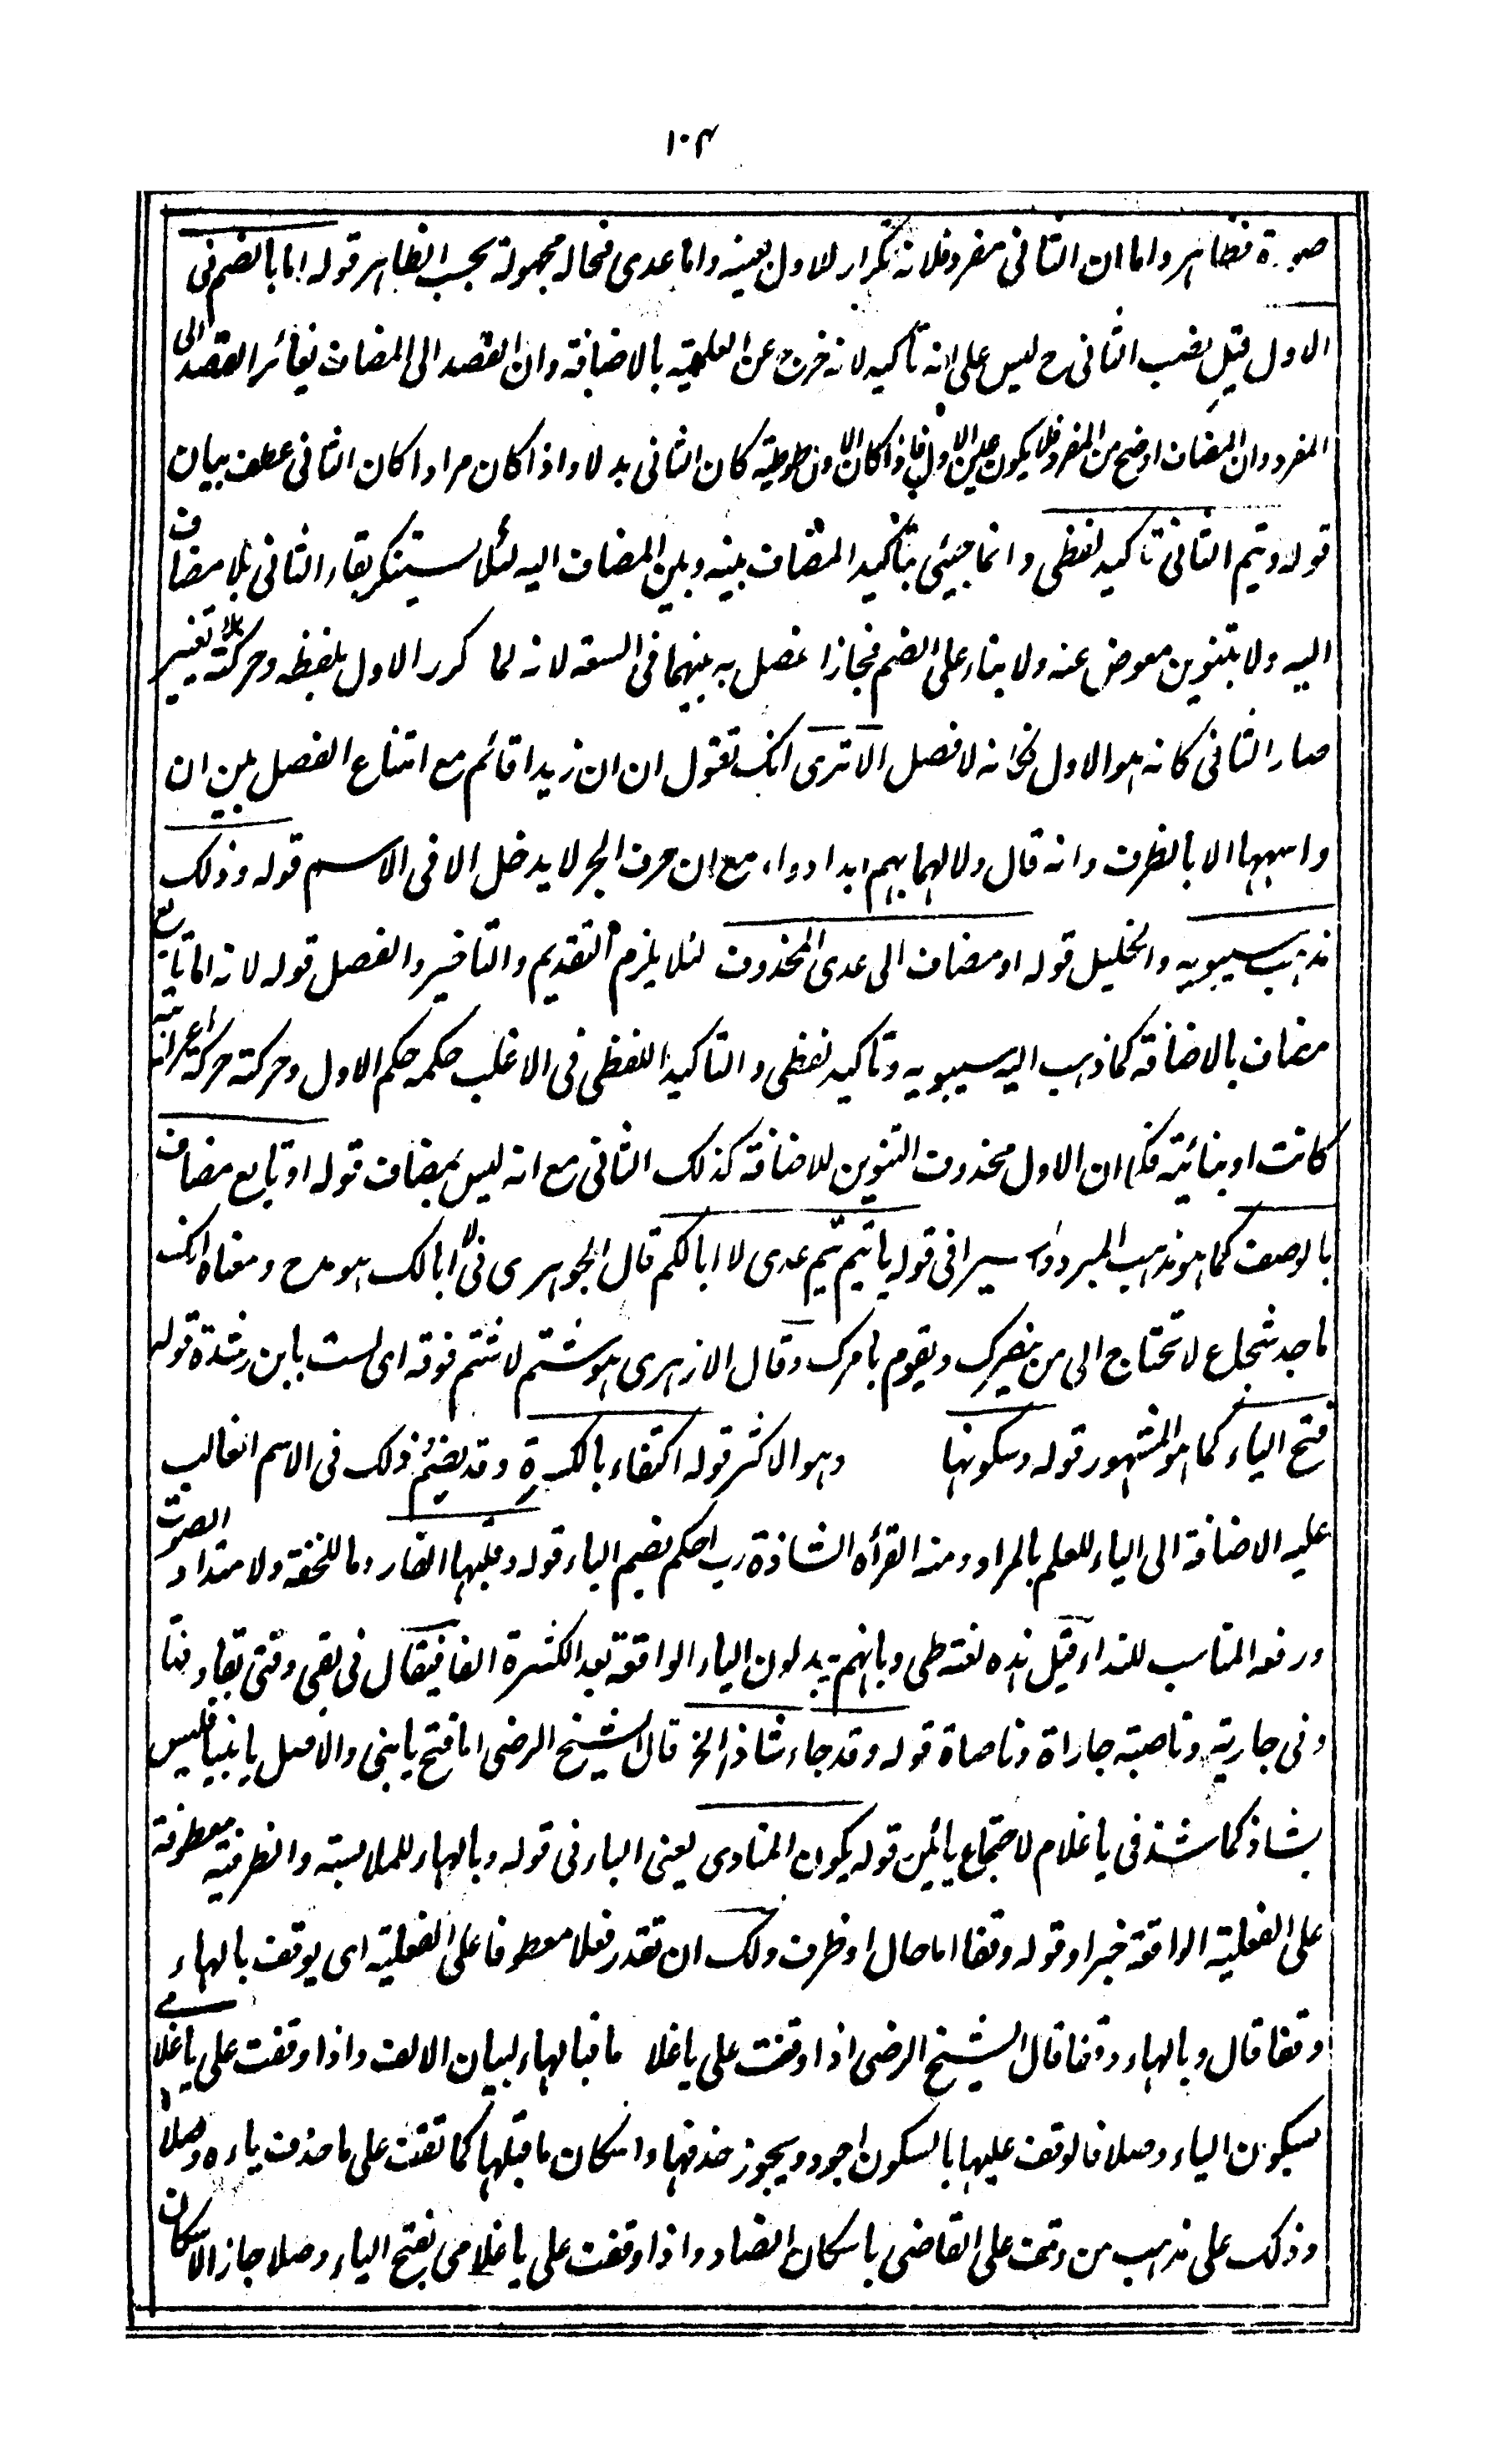 ١٠٣
صورة فظاهر واما ان الثانى مفرد فلانه تكرار للاول بعينه واما عدى فحاله مجهولة بحسب الظاهر قوله اما بالضم فى
الاول قيل نصب الثانى ح ليس على انه تاكيد لانه خرج عن العلمية بالاضافة وان القصد الى المضاف يغائر القصد الى
المفرد وان المضاف اوضح من المفرد فلا يكون عين الاول فاذا كان الاول توطية كان الثانى بدلا واذا كان مرادا كان الثانى عطف بيان
قوله وتيم الثانى تاكيد لفظى وانما جيئ بتاكيد المضاف بينه وبين المضاف اليه لئلا يستنكر بقاء الثانى بلا مضاف
اليه ولا تنوين معوض عنه ولا بناء على الضم فجاز الفصل به بينهما فى السعة لانه لما كرر الاول بلفظه وحركته بلا تغيير
صار الثانى كانه هو الاول فكانه لا فصل الا ترى انك تقول ان ان زيدا قائم مع امتناع الفصل بين ان
واسمها الا بالظرف وانه قال ولا للما بهم ابدا دواء مع ان حرف الجر لا يدخل الا فى الاسم قوله وذلك
مذهب سيبويه والخليل قوله او مضاف الى عدى المحذوف لئلا يلزم التقديم والتاخير والفصل قوله لانه اما تابع
مضاف بالاضافة كما ذهب اليه سيبويه وتاكيد لفظى والتاكيد اللفظى فى الاغلب حكمه حكم الاول وحركته حركة اعرابية
كانت او بنائية فكما ان الاول محذوف التنوين للاضافة كذلك الثانى مع انه ليس بمضاف قوله او تابع مضاف
بالوصف كما هو مذهب المبرد والسيرافى قوله يا تيم تيم عدى لا ابا لكم قال الجوهرى فى لا ابالك هو مدح ومعناه انك
ماجد شجاع لا تحتاج الى من ينصرك ويقوم بامرك وقال الازهرى هو شتم لا شتم فوقه اى لست بابن رشدة قوله
فتح الياء كما هو المشهور قوله وسكونها وهو الاكثر قوله اكتفاء بالكسرة وقد يضم ذلك فى الاسم الغالب
عليه الاضافة الى الياء للعلم بالمراد ومنه القرأة الشاذة رب احكم بضم الباء قوله وقلبها الفا روما للخفة ولامتداد الصوت
ورفعه المناسب للنداء قيل هذه لغة طى وبانهم يبدلون الياء الواقعة بعد الكسرة الفا فيقال فى بقى وفتى بقا وفتا
وفى جارية وناصية جاراة وناصاة قوله وقد جاء شاذا الخ قال الشيخ الرضى اما فتح يا بنى والاصل يا بنيا فليس
بشاذ كما شذ فى يا غلام لاجتماع يائين قوله يكون المنادى يعنى الباء فى قوله وبالهاء للملابسة والظرفية معطوفة
على الفعلية الواقعة خبرا وقوله وقفا اما حال او ظرف ولك ان تقدر فعلا معطوفا على الفعلية اى يوقف بالهاء
وقفا قال وبالهاء وقفا قال الشيخ الرضى اذا وقفت على يا غلاما فبالهاء لبيان الالف واذا وقفت على يا غلامى
بسكون الياء وصلا فالوقف عليها بالسكون اجود ويجوز حذفها واسكان ما قبلها كما تقف على ما حذفت ياءه وصلا
وذلك على مذهب من وقف على القاضى باسكان الضاد واذا وقفت على يا غلامى بفتح الياء وصلا جاز الاسكان